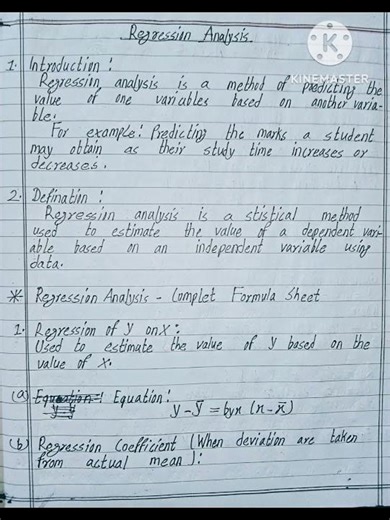 Regression Analysis.
KINEMASTER
1. Introduction:
Regression analysis is a method of predicting the
value of one variables based on another varia-
ble.
For example: Predicting the marks a student
may obtain as their study time increases or
decreases.
2. Defination:
Regression analysis is a stistical method
used to estimate the value of a dependent vari-
able based on an independent variable using
data.
* Regression Analysis - Complet Formula Sheet
1. Regression of y on x:
Used to estimate the value of y based on the
value of x.
(a) Equation: Equation:
y - ȳ = byx (x - x̄)
(b) Regression Coefficient (When deviation are taken
from actual mean):